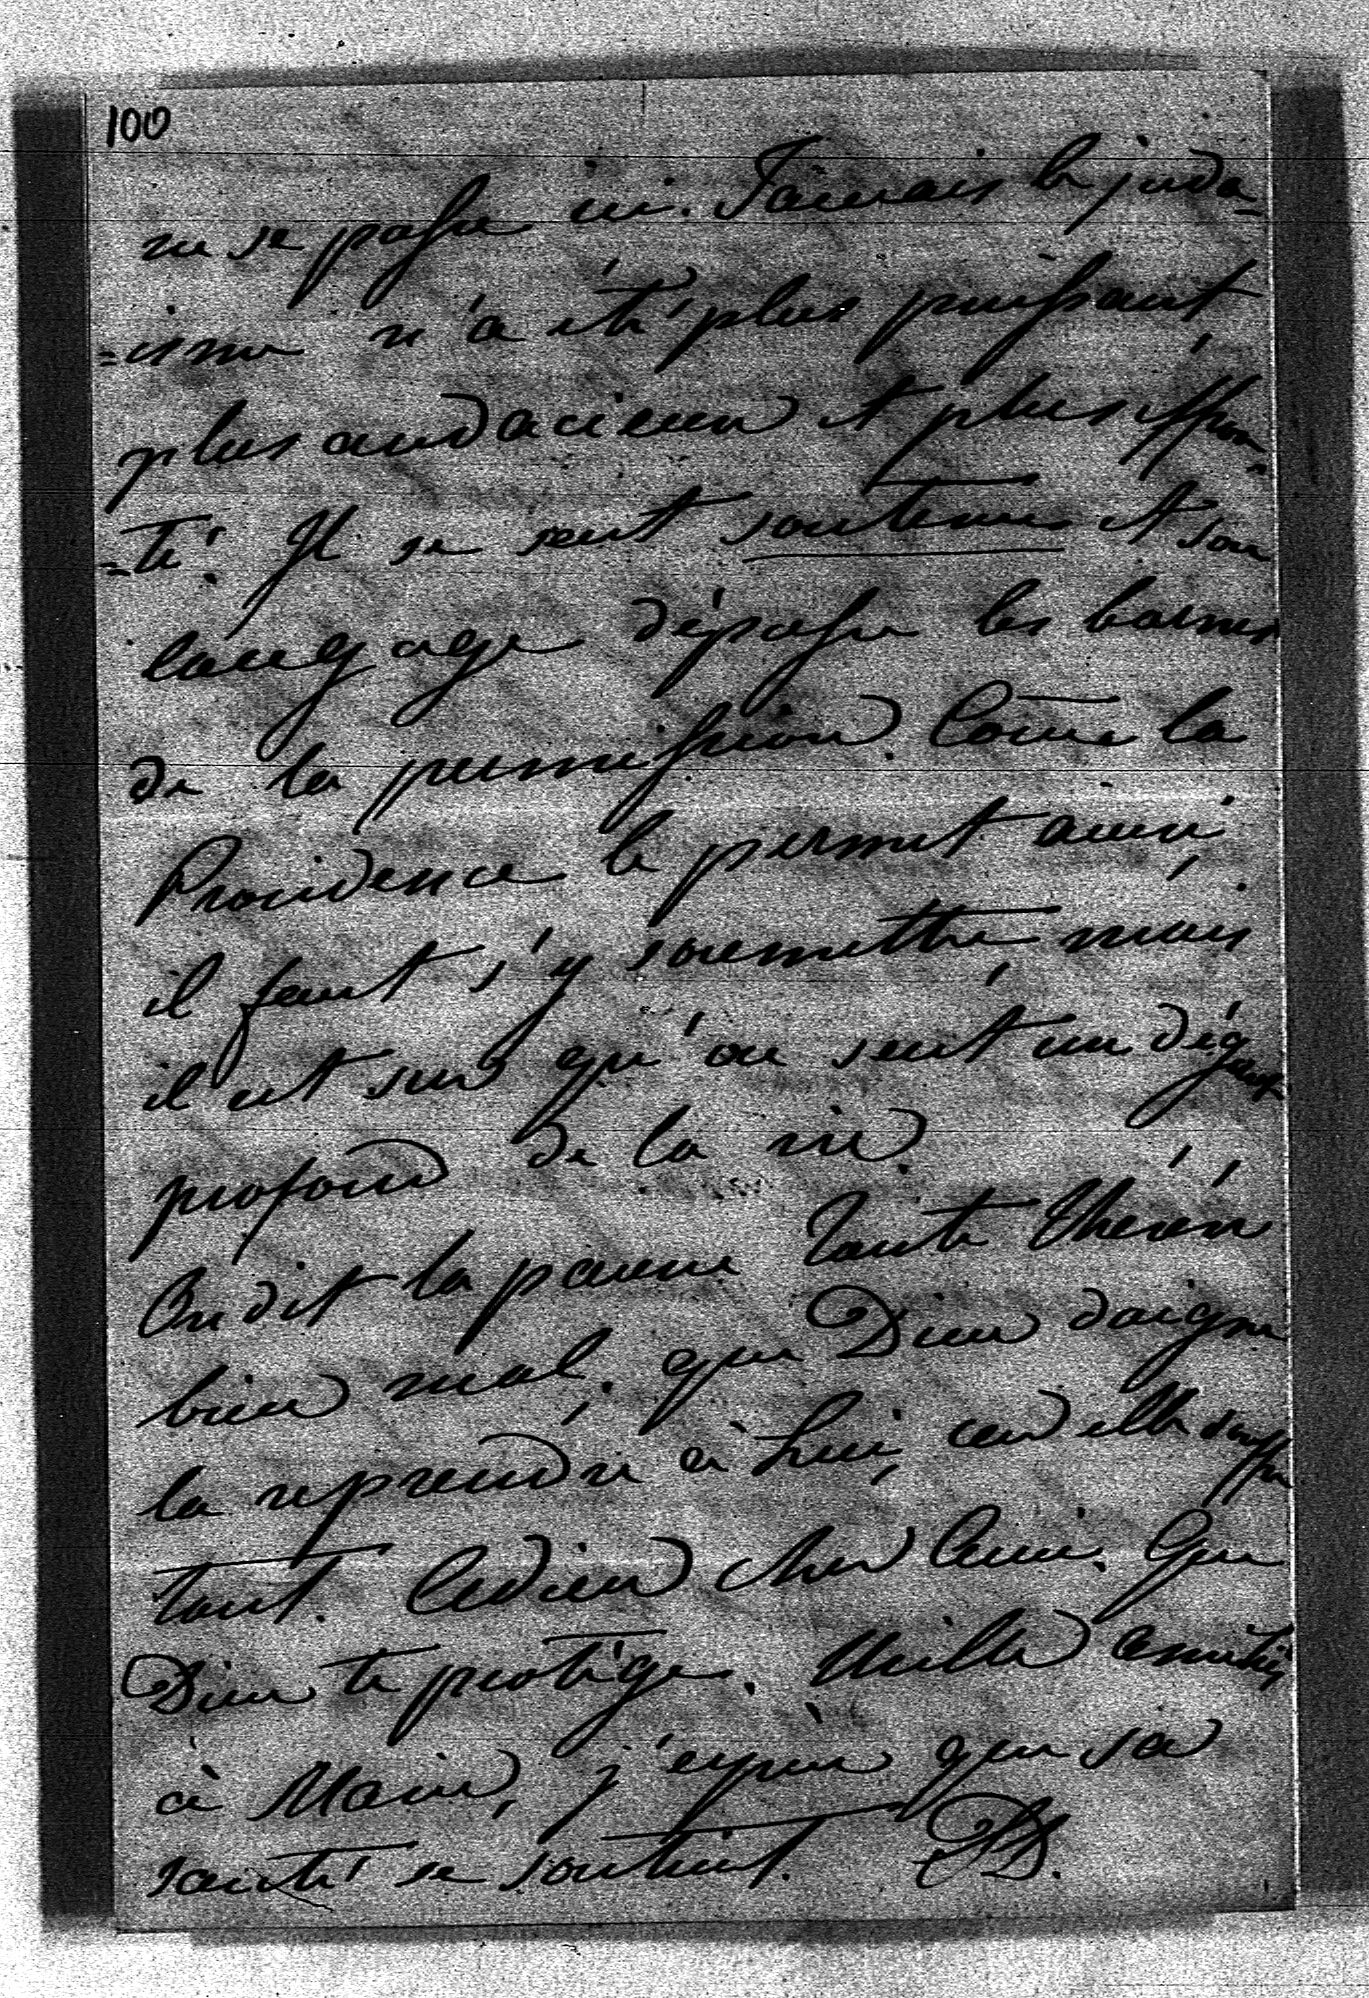 100
ne se passe ici. Jamais le juda-
=isme n'a été plus puissant,
plus audacieux et plus effron-
=té. Il se sent soutenu et son
langage dépasse les bornes
de la permission. Come la
Providence le permet ainsi,
il faut s'y soumettre, mais
il est sur qu'on sent un dégout
profond de la vie.
On dit la pauvre Tante Thérèse
bien mal, que Dieu daigne
la reprendre à Lui, car elle souffre
tant. Adieu cher Ami. Que
Dieu te protège. Mille amitiés
à Marie, j'espère que sa
santé se soutient.